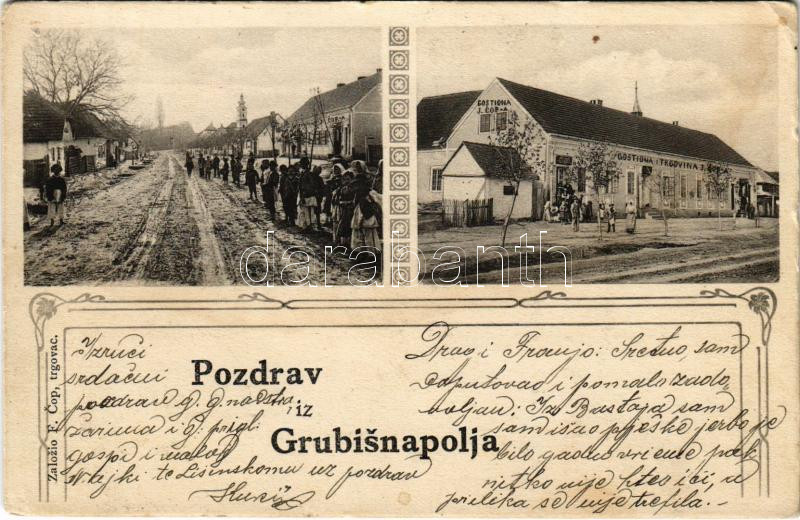 GOSTIONA
J. ČOP-A
GOSTIONA I TRGOVINA J. ČOP-A
darabanth
Založio F. Čop, trgovac.
Pozdrav
iz
Grubišnapolja
Izruči
srdačni
pozdrav g. g.
i g.
gospi i malog
te Lisinskomu uz pozdrav
Dragi Franjo: Sretno sam
otputovao i pomalo zado,
voljan: Iz Bastaja sam
sam išao pješke jerbo je
bilo gadno vrieme pak
nitko nije htev ići, a
prilika se nije trefila.-